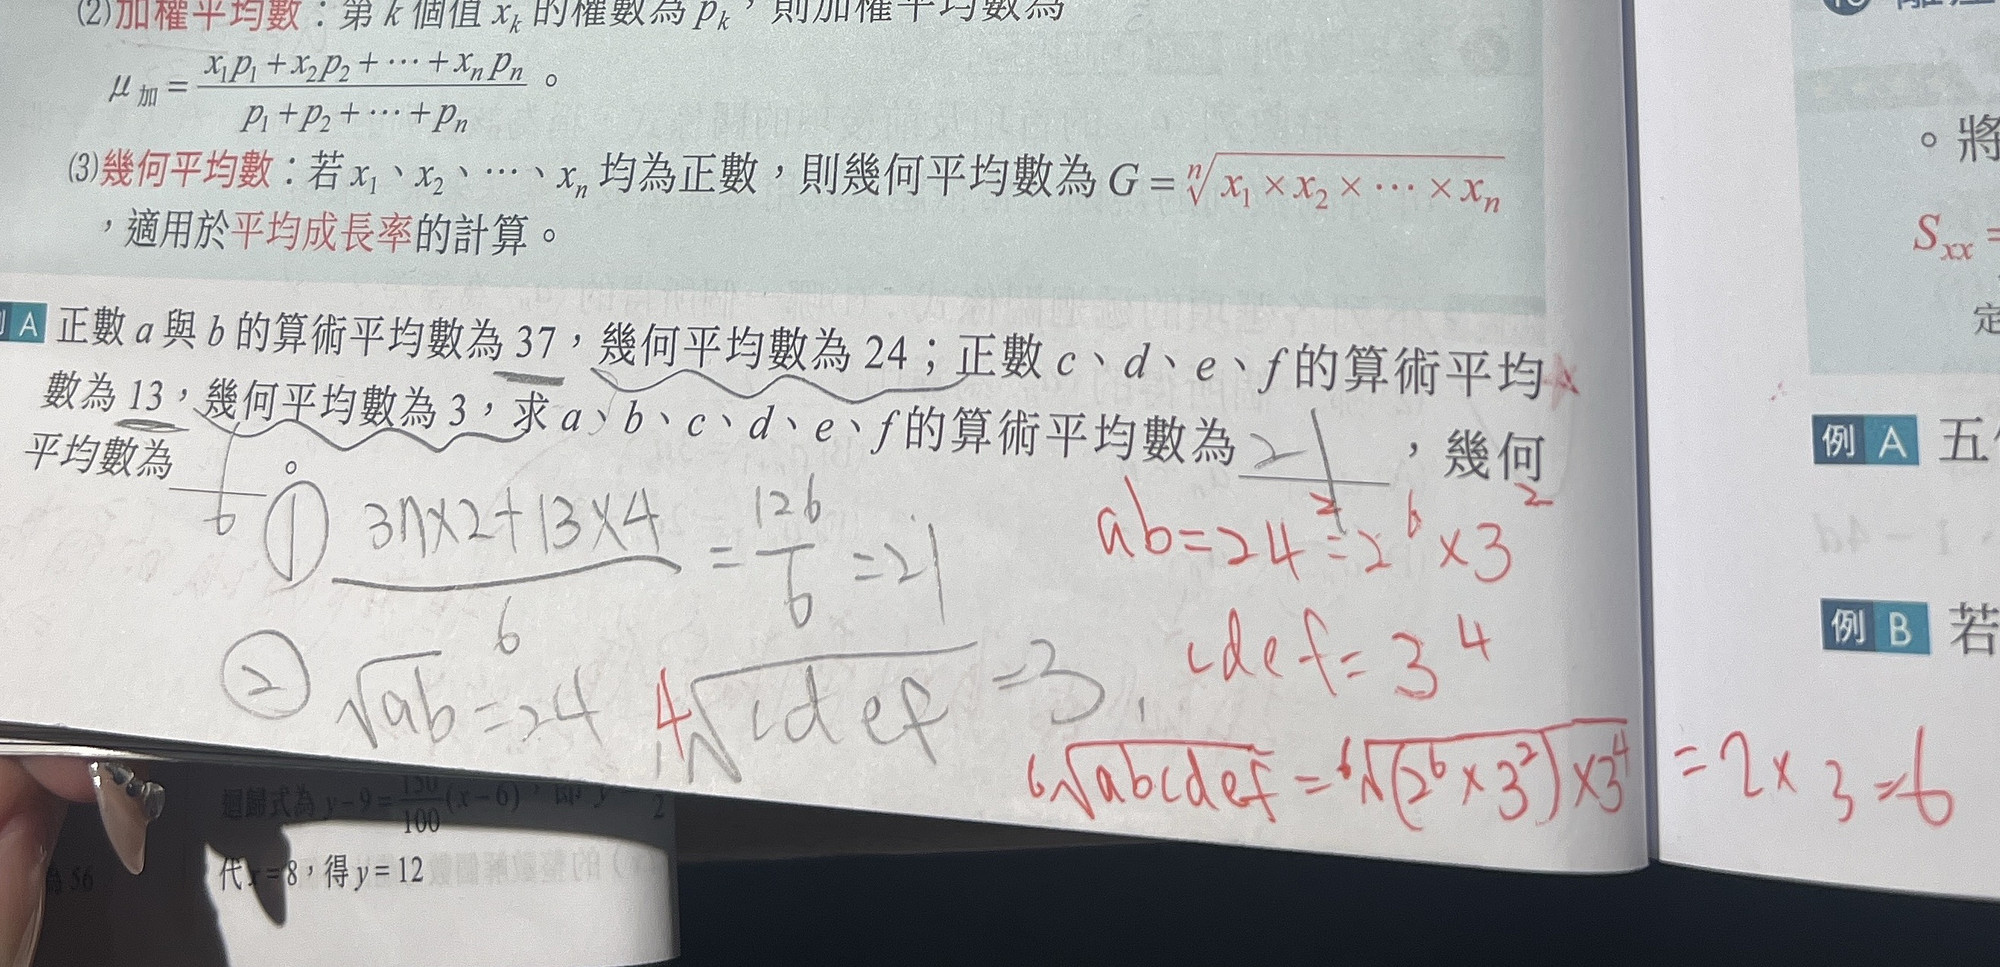 (2)加權平均數：第 k 個值 x_k 的權數為 p_k，則加權平均數為
μ加 = (x₁p₁+x₂p₂+⋯+xₙpₙ)/(p₁+p₂+⋯+pₙ)。
(3)幾何平均數：若 x₁、x₂、⋯、xₙ 均為正數，則幾何平均數為 G = ⁿ√(x₁×x₂×⋯×xₙ)
，適用於平均成長率的計算。
A 正數 a 與 b 的算術平均數為 37，幾何平均數為 24；正數 c、d、e、f 的算術平均
數為 13，幾何平均數為 3，求 a、b、c、d、e、f 的算術平均數為 21，幾何
平均數為 6。
① (37×2+13×4)/6 = 126/6 = 21
② √ab = 24 ⁴√cdef = 3
ab = 24² = 2⁶ × 3²
cdef = 3⁴
⁶√abcdef = ⁶√(2⁶×3²)×3⁴ = 2×3 = 6
迴歸式為 y−9 = 150/100 (x−6)，即 y
2
代 x=8，得 y=12
56
。將
Sxx =
定
例 A 五
例 B 若